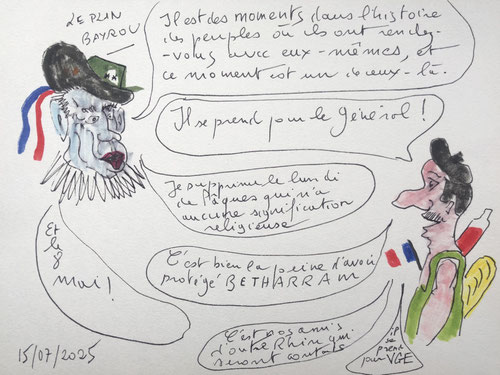 LE PLAN
BAYROU
Il est des moments dans l'histoire
des peuples où ils ont rendez-
-vous avec eux-mêmes, et
ce moment est un de ceux-là.
Il se prend pour le Général !
Je supprime le lundi
de Pâques qui n'a
aucune signification
religieuse
C'est bien la peine d'avoir
protégé BETHARRAM
Et
le 8
mai !
C'est nos amis
d'outre Rhin qui
seront contents
il
se prend
pour VGE
15/07/2025